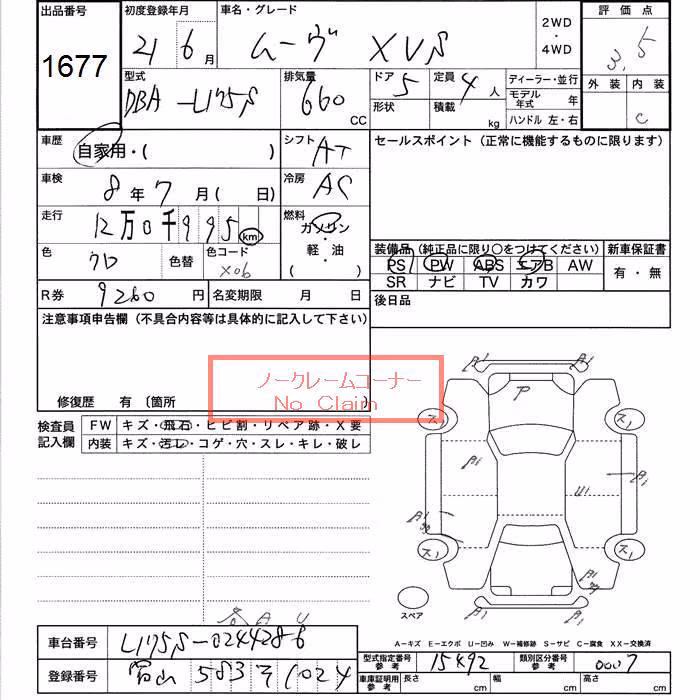 出品番号 初度登録年月 車名・グレード 2WD・4WD 評価点
1677 21 6月 ムーヴ XVS 3.5
型式 排気量 ドア 定員 ディーラー・並行 外装 内装
DBA-L175S 660 CC 5 4人 モデル年式 年
形状 積載 kg ハンドル 左・右 C
車歴 自家用・( ) シフト AT セールスポイント(正常に機能するものに限ります)
車検 8年7月( 日) 冷房 AC
走行 12万0千995 km 燃料 ガソリン・軽・油( )
色 クロ 色替 色コード X06
装備品(純正品に限り○をつけてください) 新車保証書
PS PW ABS エアB AW 有・無
SR ナビ TV カワ
R券 9260円 名変期限 月 日 後日品
注意事項申告欄(不具合内容等は具体的に記入して下さい)
ノークレームコーナー
No Claim
修復歴 有〔箇所
検査員記入欄 FW キズ・飛石・ヒビ割・リペア跡・X要
内装 キズ・汚レ・コゲ・穴・スレ・キレ・破レ
A1 A1
P
ス1 ス1
A1 U1 A1
A1
ス1 ス1
A1 A1
スペア
A-キズ E-エクボ U-凹み W-補修跡 S-サビ C-腐食 XX-交換済
車台番号 L175S-0244286
型式指定番号 参考 15492 類別区分番号 参考 0007
登録番号 富山 583 そ 1024
車庫証明用 参考 長さ cm 幅 cm 高さ cm